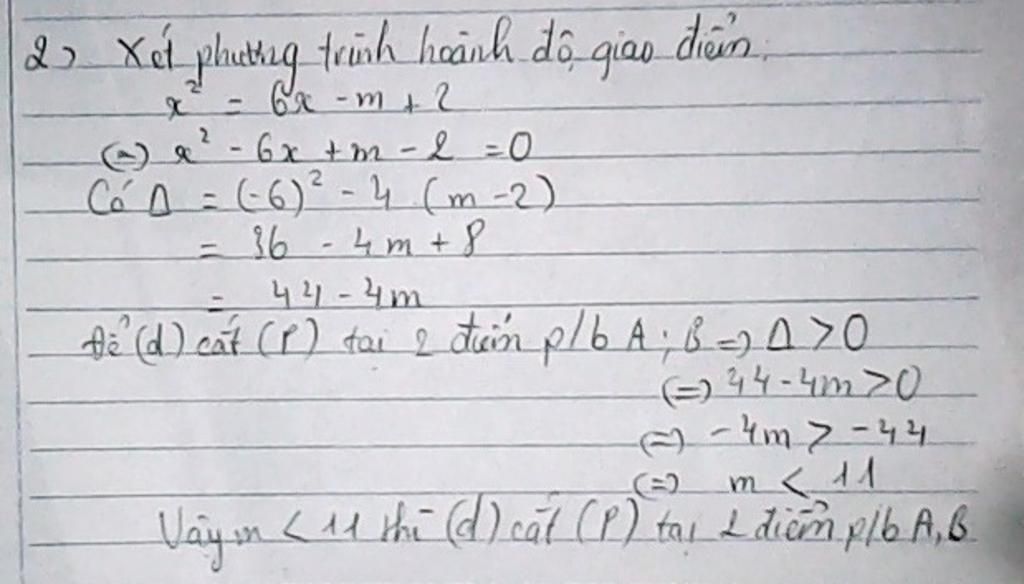 2) Xét phương trình hoành độ giao điểm.
x² = 6x - m + 2
(=) x² - 6x + m - 2 = 0
Có Δ = (-6)² - 4 (m - 2)
= 36 - 4m + 8
= 44 - 4m
Để (d) cắt (P) tại 2 điểm p/b A; B => Δ > 0
(=) 44 - 4m > 0
(=) -4m > -44
(=) m < 11
Vậy m < 11 thì (d) cắt (P) tại 2 điểm p/b A, B